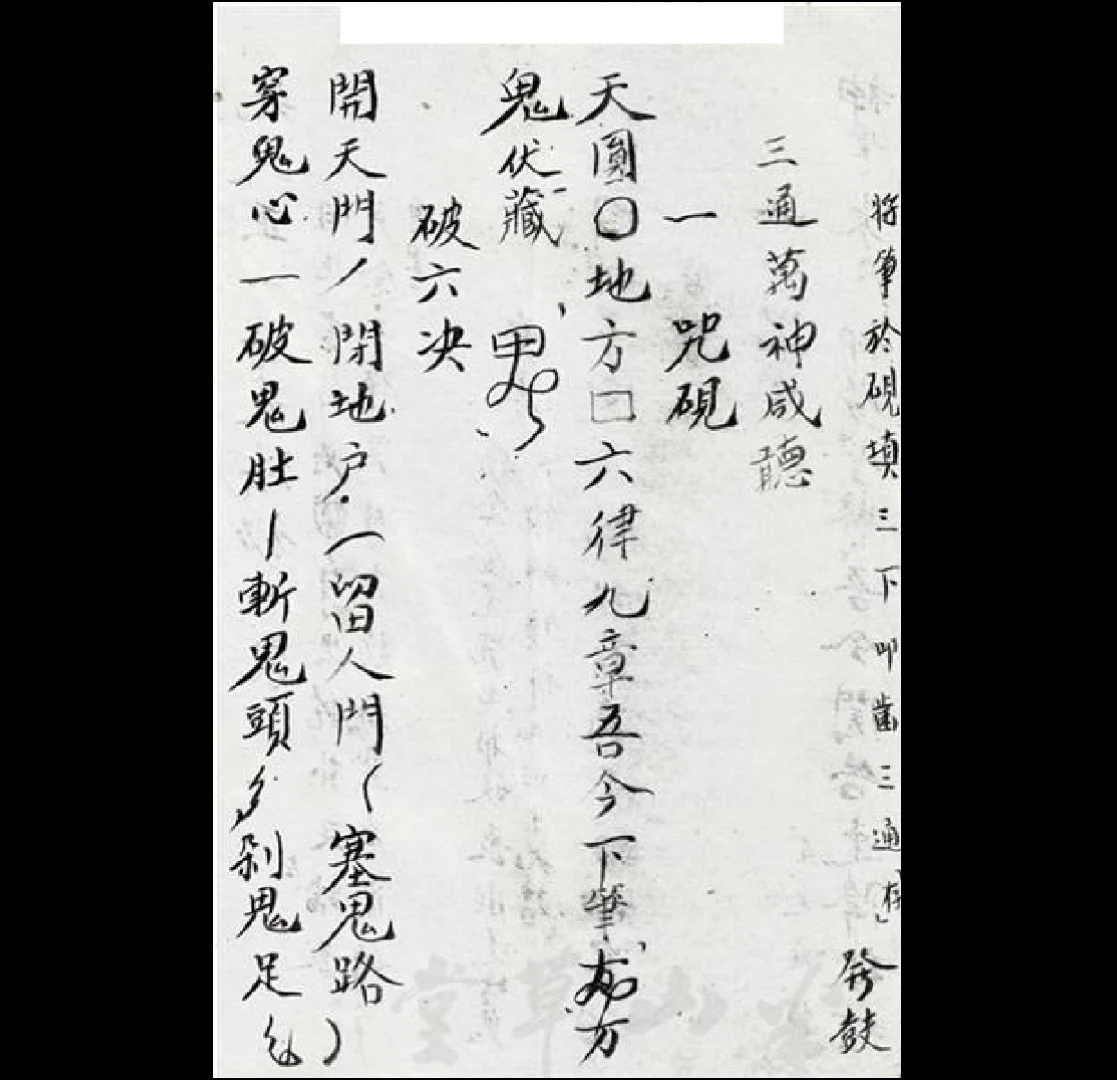 将筆於硯填三下叩齒三通存 発鼓
三通萬神咸聽
一 咒硯
天圓〇地方口六律九章吾今下筆方
鬼伏藏
破六决
開天門ノ閉地户一留人門（塞鬼路）
穿鬼心一破鬼肚丨斬鬼頭剁鬼足
山草堂